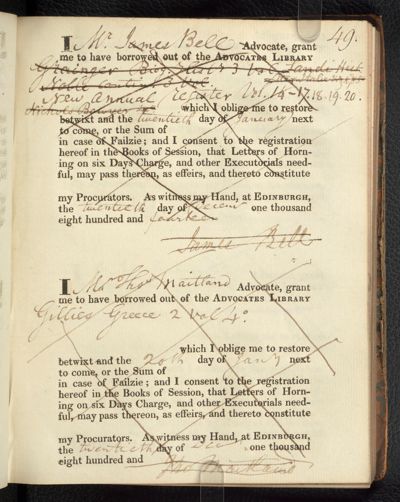 49.
I Mr. James Bell Advocate, grant
me to have borrowed out of the ADVOCATES LIBRARY
Grainger Biog. Hist.
New Annual Register Vol. 14-17.18.19.20.
which I oblige me to restore
betwixt and the twentieth day of January next
to come, or the Sum of
in case of Failzie; and I consent to the registration
hereof in the Books of Session, that Letters of Horn-
ing on six Days Charge, and other Executorials need-
ful, may pass thereon, as effeirs, and thereto constitute
my Procurators. As witness my Hand, at EDINBURGH,
the twentieth day of Decem one thousand
eight hundred and fourteen
James Bell
I Mr. Thos. Maitland Advocate, grant
me to have borrowed out of the ADVOCATES LIBRARY
Gillies Greece 2 vol 4o.
which I oblige me to restore
betwixt and the 20th day of Jany next
to come, or the Sum of
in case of Failzie; and I consent to the registration
hereof in the Books of Session, that Letters of Horn-
ing on six Days Charge, and other Executorials need-
ful, may pass thereon, as effeirs, and thereto constitute
my Procurators. As witness my Hand, at EDINBURGH,
the twentieth day of one thousand
eight hundred and
Tho Maitland